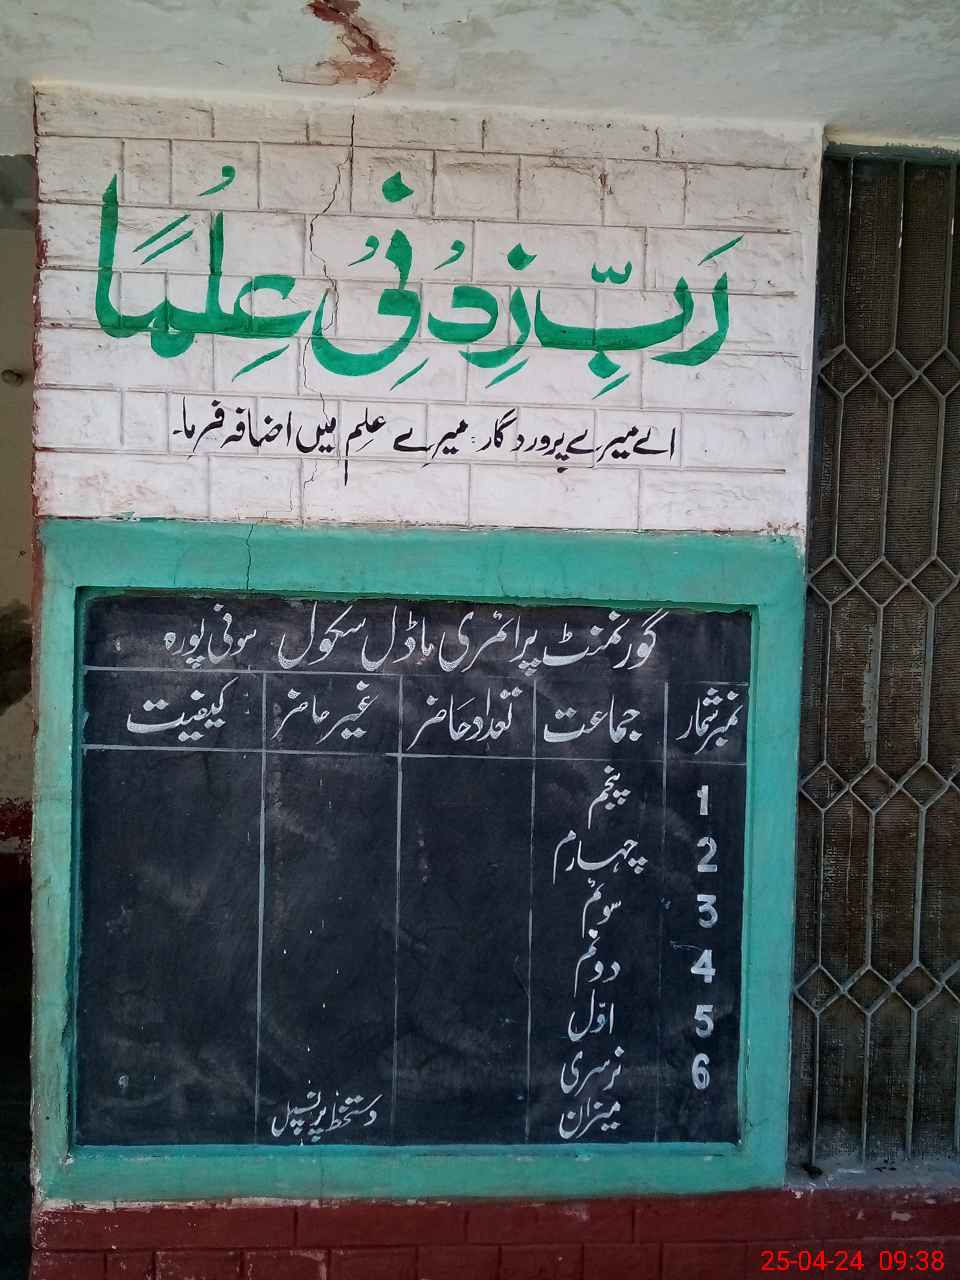 رَبِّ زِدْ نِیْ عِلْمًا
اے میرے پروردگار: میرے عِلم میں اضافہ فرما۔
گورنمنٹ پرائمری ماڈل سکول سوفی پورہ
نمبر شمار جماعت تعداد حاضر غیر حاضر کیفیت
1 پنجم
2 چہارم
3 سوئم
4 دوئم
5 اوّل
6 نرسری
میزان دستخط پرنسپل
25-04-24 09:38